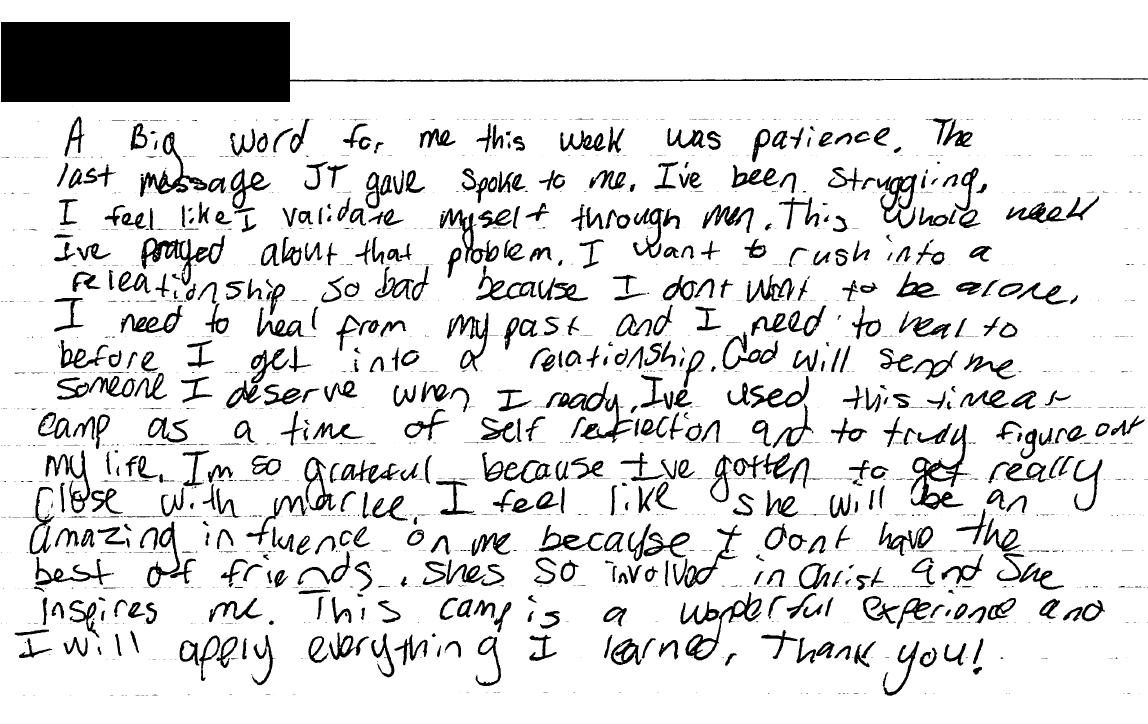 A Big word for me this week was patience. The
last message JT gave spoke to me. I've been struggling,
I feel like I validate myself through men. This whole week
I've prayed about that problem. I want to rush into a
releationship so bad because I dont want to be alone.
I need to heal from my past and I need to heal to
before I get into a relationship. God will send me
someone I deserve when I ready. I've used this time at
camp as a time of self reflection and to truly figure out
my life. Im so grateful because I've gotten to get really
close with marlee. I feel like she will be an
amazing influence on me because I dont have the
best of friends. shes so involved in Christ and she
inspires me. This camp is a wonderful experience and
I will apply everything I learned. Thank you!